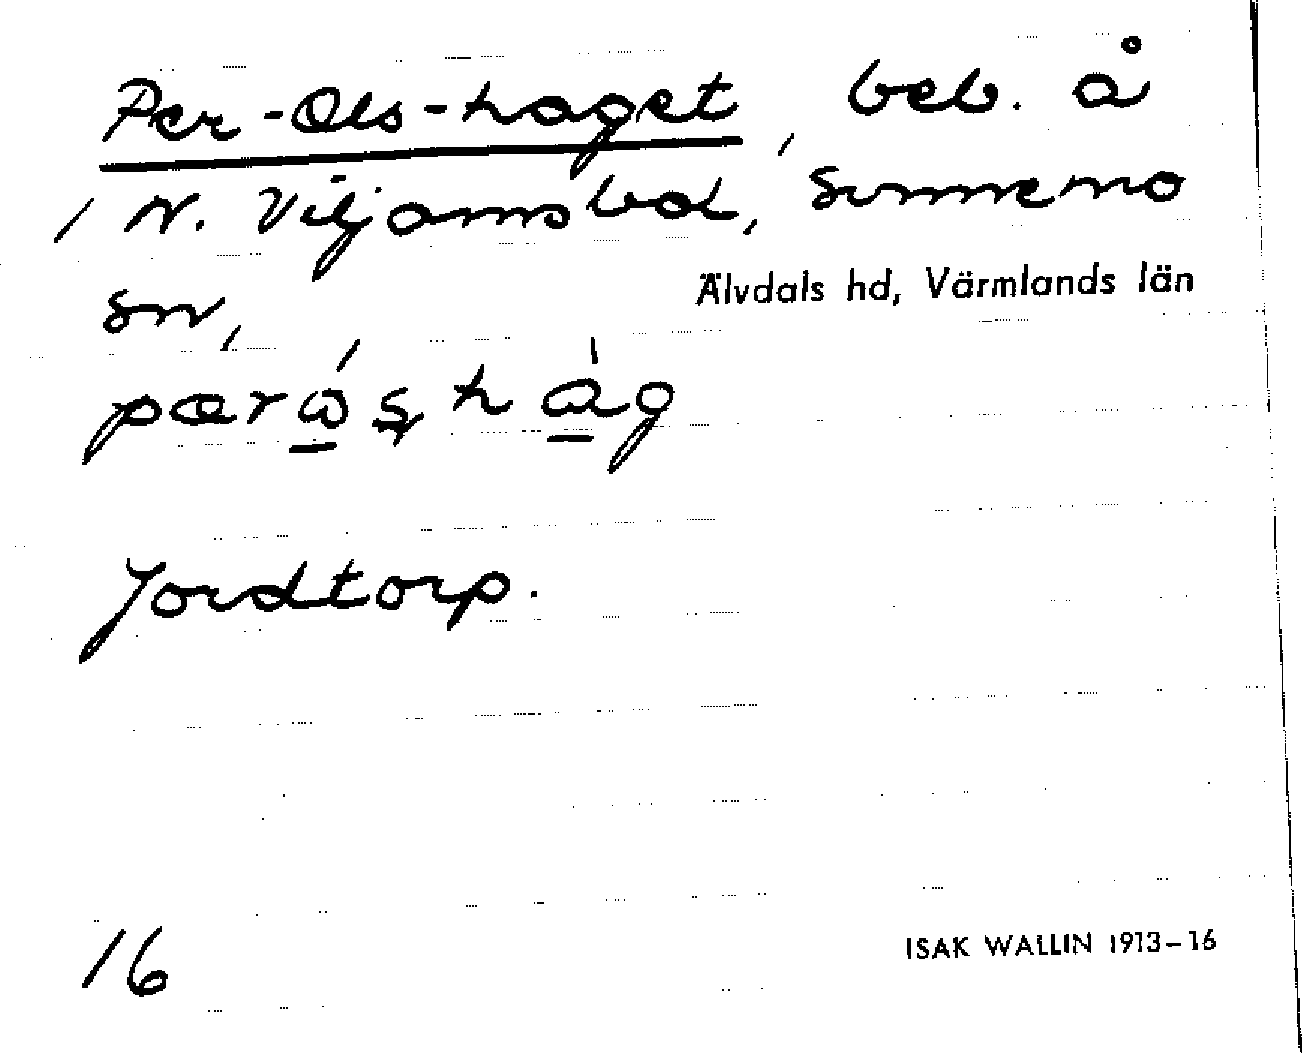 Per-Ols-haget, beb. å
N. Viljamsbol, Sunnemo
sn,
Älvdals hd, Värmlands län
Jordtorp.
16
ISAK WALLIN 1913–16